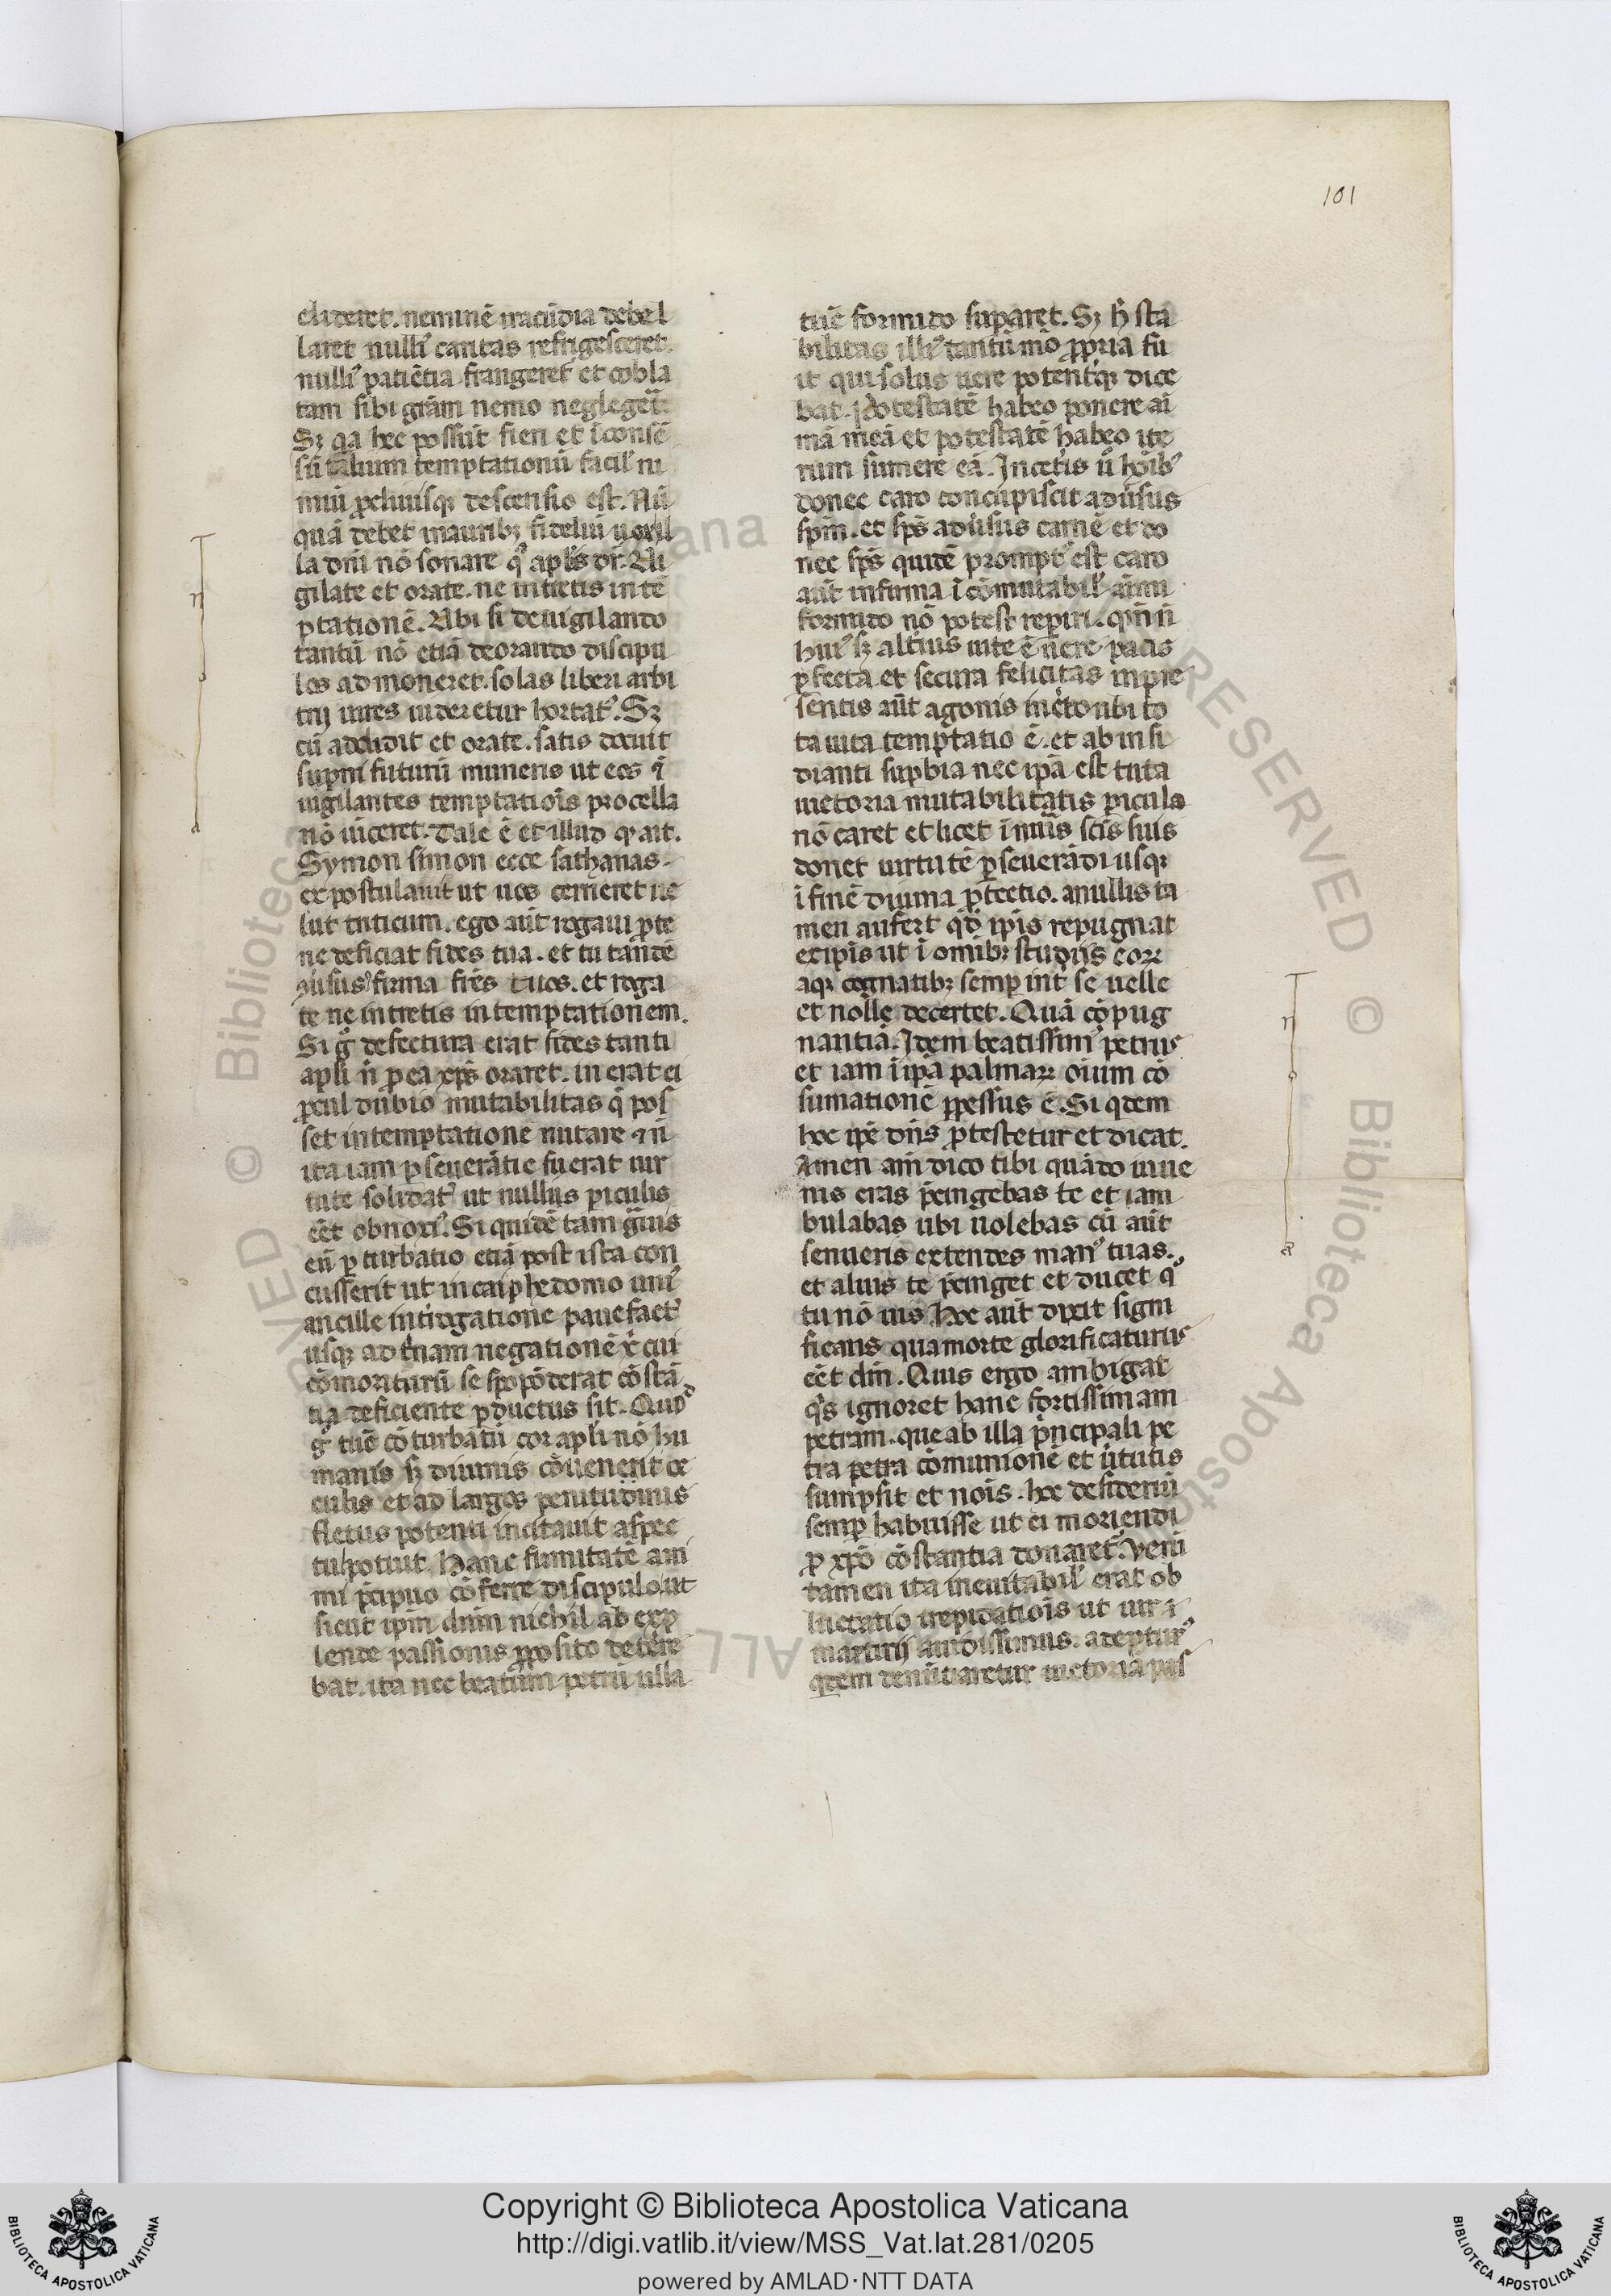 101
elideret. neminē iracūdia debel
laret nulliꝰ caritas refrigesceret.
nulliꝰ patiētia frangeret et cobla
tam sibi grām nemo neglegeret.
Sꝫ qa hec possūt fieri et i ̄consē
sū taliuм temptationū facil' ni
miū ꝓcliuusqꝫ descensio est. Nū
quā debet mauribꝫ fidelium uox il
la dn̄i nō sonare q̄ apl'is dr̄. Vi
gilate et orate. ne intretis in tē
ptationē. Ubi si de uigilando
tantū nō etiā de orando discipu
los admoneret. solas liberi arbi
trij uires uideretur hortatꝰ. Sꝫ
cū addidit et orate. satis docuit
suꝑni futurū muneris ut eos ī
uigilantes temptatiōis procella
nō uiceret. Tale ē et illud qͦ ait.
Symon simon ecce sathanas
expostulauit ut uos cerneret ue
lut triticum. ego aūt rogaui ꝓ te
ne deficiat fides tua. et tu tandē
ꝯuͥsus firma fr̄es tuos. et roga
te ne intretis in temptationem.
Si gͦ defectura erat fides tanti
apl'i n̄ ꝓ ea xp̄s oraret. inerat ei
ꝓcul dubio mutabilitas q̄ pos
set in temptatione nutare ⁊ n̄
ita iam ꝑseuerātie fuerat uir
tute solidatꝰ ut nullus ꝑiculis
eēt obnoxiꝰ. Si quidē tam gͣuis
eū ꝑturbatio etiā post ista con
cusserit ut in caiphe domo uniꝰ
ancille int̄rogatione pauefactꝰ
usqꝫ ad t̄nam negationē x̄ cui
cōmoriturū se spopōderat cōstā
tia deficiente ꝑductus sit. Quod
gͦ tūc cōturbatū cor apl'i nō hu
manis sꝫ diuinis cōuenerit oc
culis et ad largos penitudinis
fletus potenti incitauit aspec
tu potuit. hanc firmitatē ani
mi p̄cipuo cōferre discipulo. ut
sicut ip̄m dn̄m nichil ab exp
lende passionis ꝓposito deterre
bat. ita nec beatum petrū ulla
tūc formido suꝑaret. Sꝫ h̄ sta
bilitas illiꝰ tantūmō ꝓpria fu
it qui solus uere potent̄qꝫ dice
bat. Potestatē habeo ponere ai
mā meā et potestatē habeo ite
rum sumere eā. In cet̄is ū hōibꝰ
donec caro concupiscit aduͥsus
sp̄m. et sp̄s aduͥsus carnē et do
nec sp̄s quidē promptꝰ est caro
aūt infirma ī cōmutabilꝭ animi
formido nō potest reperiri. qm̄ n̄
huiꝰ sꝫ altius uite ē uere pacis
ꝑfecta et secura felicitas in pre
sentis aūt agonis incerto ubi to
ta uita temptatio ē. et ab insi
dianti suꝑbia nec ip̄a est tuta
uictoria mutabilitatis ꝑiculo
nō caret et licet ī nūis sc̄is suis
donet uirtutē ꝑseuerādi usqꝫ
ī finē diuina ꝓtectio. a nullis ta
men aufert qd̄ ip̄is repugnat
ex ip̄is ut ī omībꝫ studijs eoꝝ
aqꝫ cognatibꝫ semꝑ int̄ se uelle
et nolle decertet. Quā cōpug
nantiā. Idem beatissimꝰ petrus
et iam ī ip̄a palmaꝝ oīum cō
sumationē ꝑpessus ē. Si qͥdem
hoc ip̄e dn̄s ꝓtestetur et dicat.
Amen am̄ dico tibi quādo iuue
nis eras p̄cingebas te et ⁊am
bulabas ubi uolebas cū aūt
senueris extendes manꝰ tuas.
et alius te p̄cinget et ducet qͦ
tu nō uis. Hoc aūt dixit signi
ficans qua morte glorificaturus
eēt dm̄. Quis ergo ambigat
qͥs ignoret hanc fortissimam
petram. que ab illa pͥncipali pe
tra petra cōmunionē et ūtutis
sumpsit et nōis. hoc desideriū
semꝑ habuisse ut ei moriendi
ꝓ xp̄o cōstantia donaretͬ. Verū
tamen ita ineuitabil' erat ob
luctatio trepidatiōis ut uir ⁊
martirij auidissimus. adepturꝰ
qͥdem denūtiaretur uictoriā pas
n
o
t
a
n
o
t
a
Copyright © Biblioteca Apostolica Vaticana
http://digi.vatlib.it/view/MSS_Vat.lat.281/0205
powered by AMLAD·NTT DATA
BIBLIOTECA APOSTOLICA VATICANA
BIBLIOTECA APOSTOLICA VATICANA